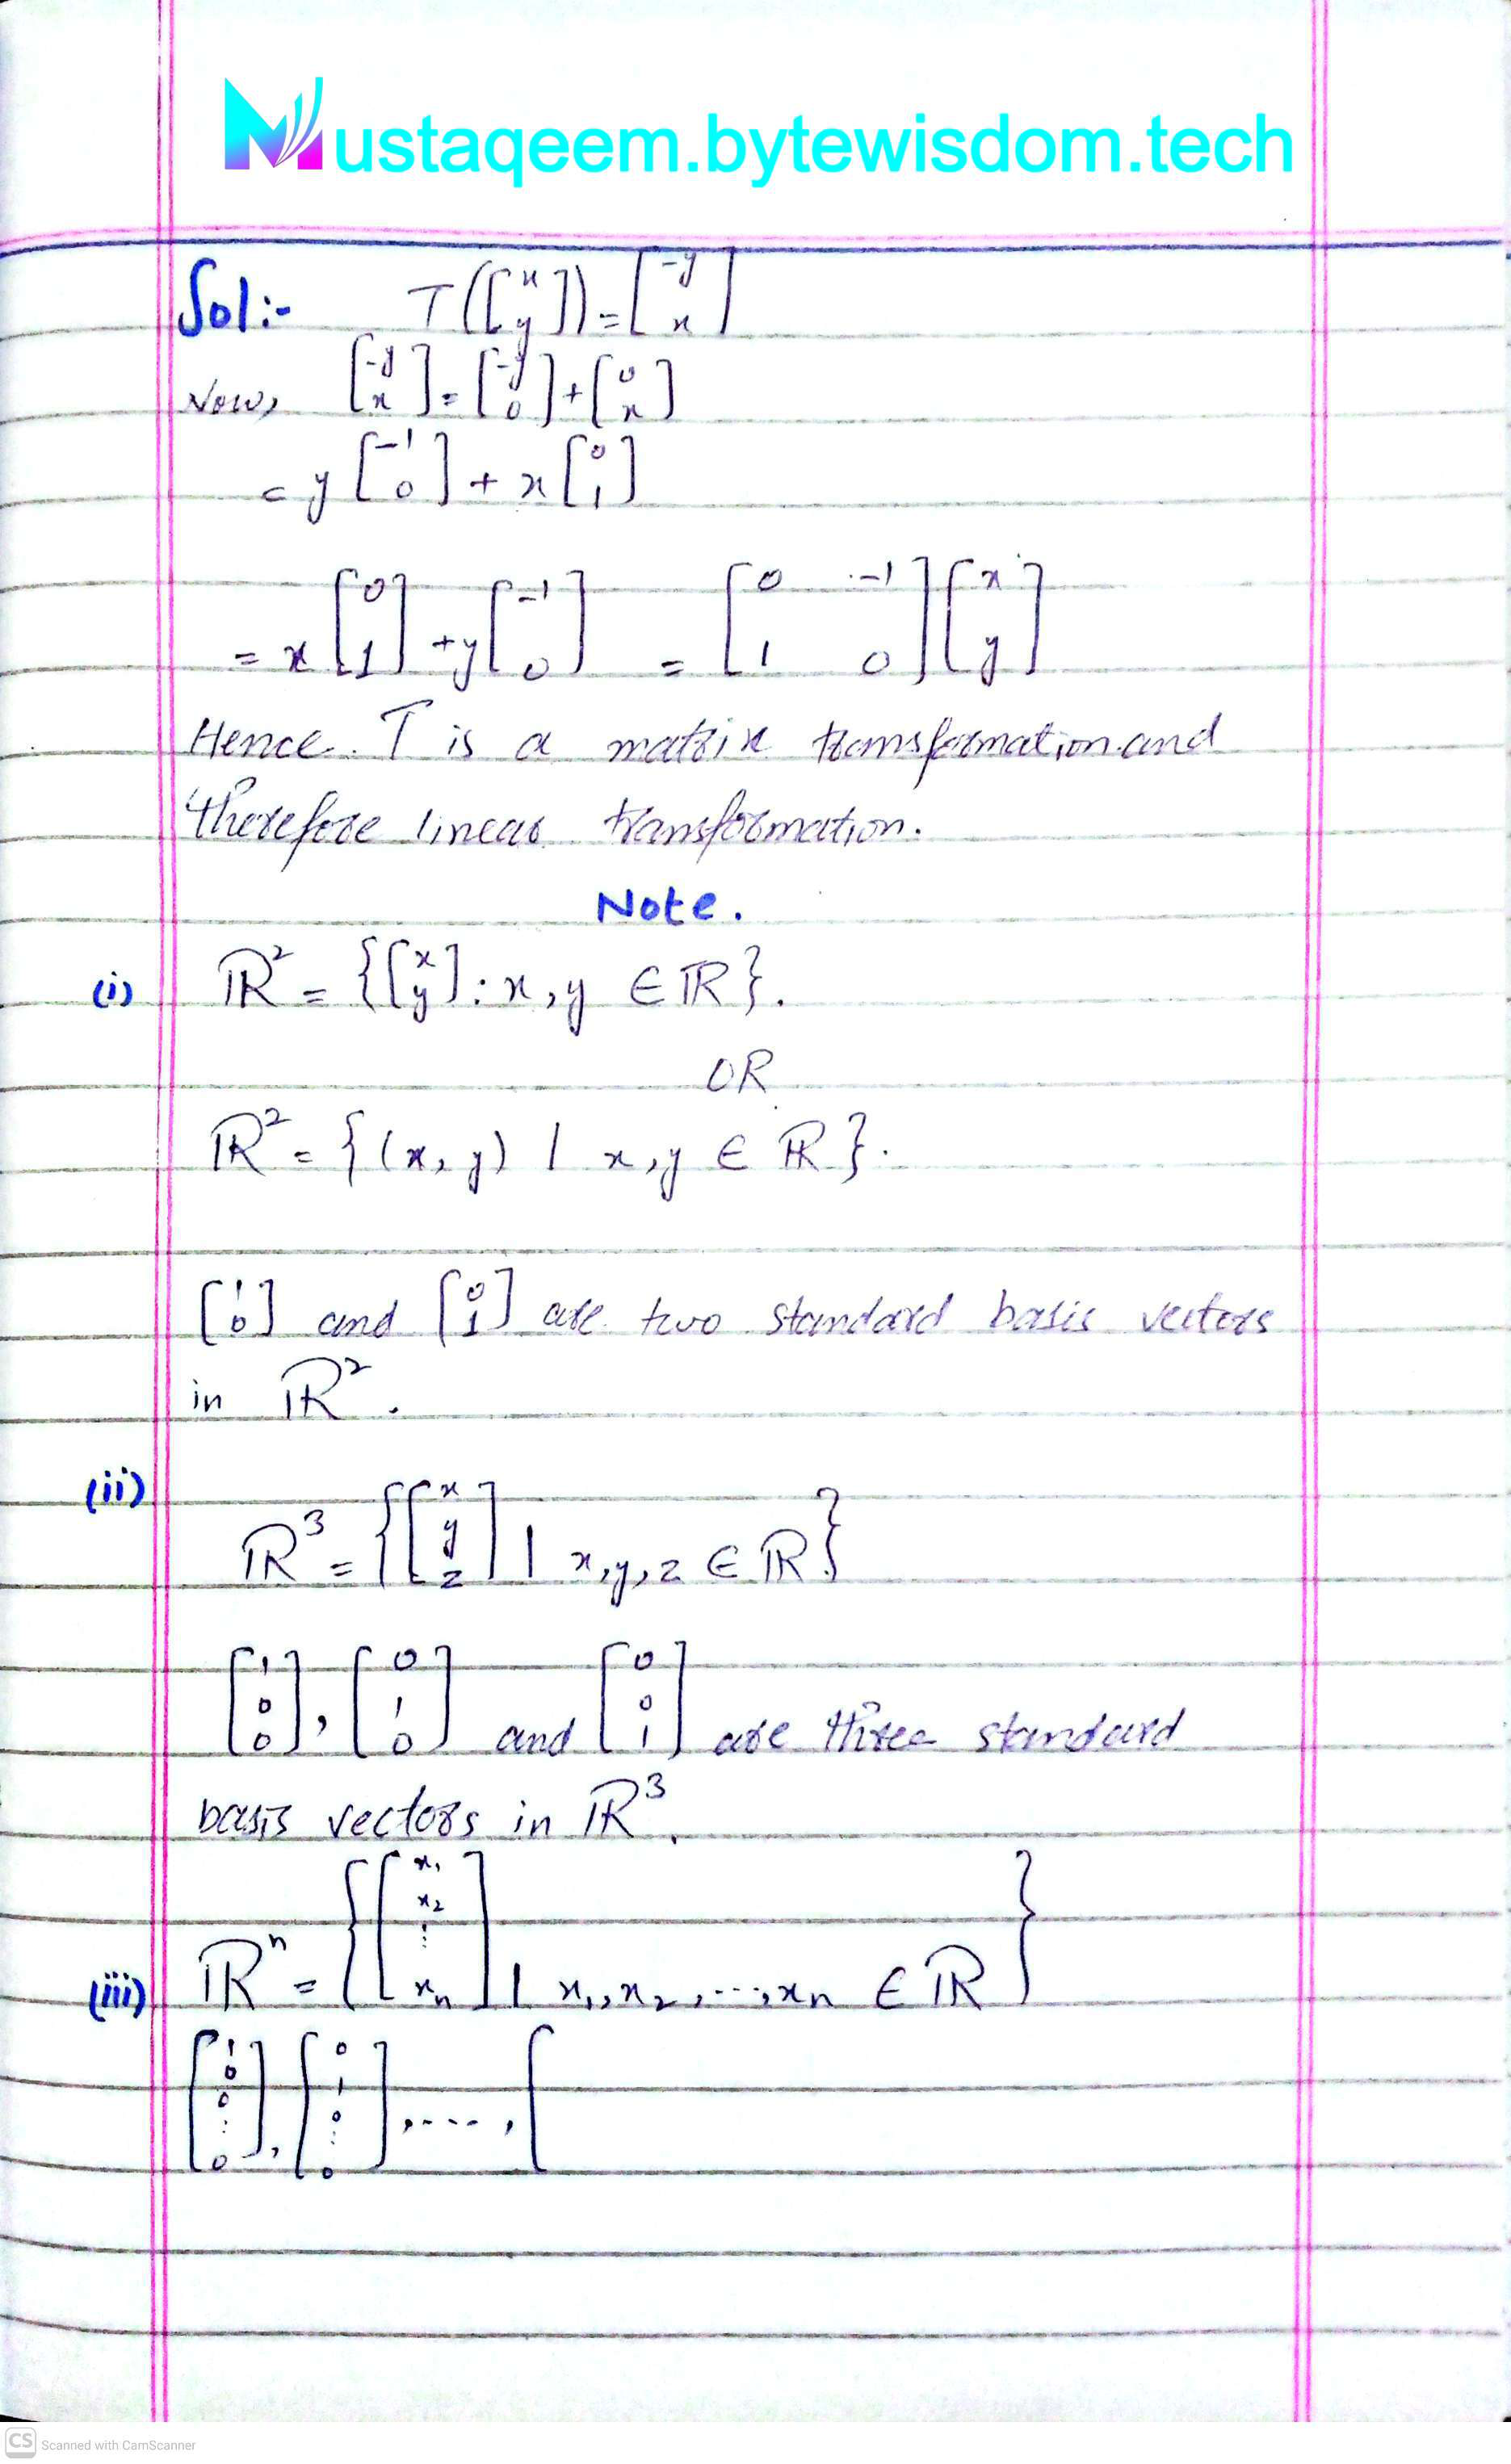 Mustaqeem.bytewisdom.tech
Sol:- T([x y]) = [-y x]
Now, [-y x] = [-y 0] + [0 x]
= y [-1 0] + x [0 1]
= x [0 1] + y [-1 0] = [0 -1 1 0] [x y]
Hence T is a matrix transformation and
therefore linear transformation.
Note.
(i) ℝ² = {[x y] : x, y ∈ ℝ}.
OR
ℝ² = {(x, y) | x, y ∈ ℝ}.
[1 0] and [0 1] are two standard basis vectors
in ℝ².
(ii)
ℝ³ = {[x y z] | x, y, z ∈ ℝ}
[1 0 0], [0 1 0] and [0 0 1] are three standard
basis vectors in ℝ³.
(iii) ℝⁿ = {[x₁ x₂ ⋮ xₙ] | x₁, x₂, ..., xₙ ∈ ℝ}
[1 0 0 ⋮ 0], [0 1 0 ⋮ 0], ...., [
CS Scanned with CamScanner